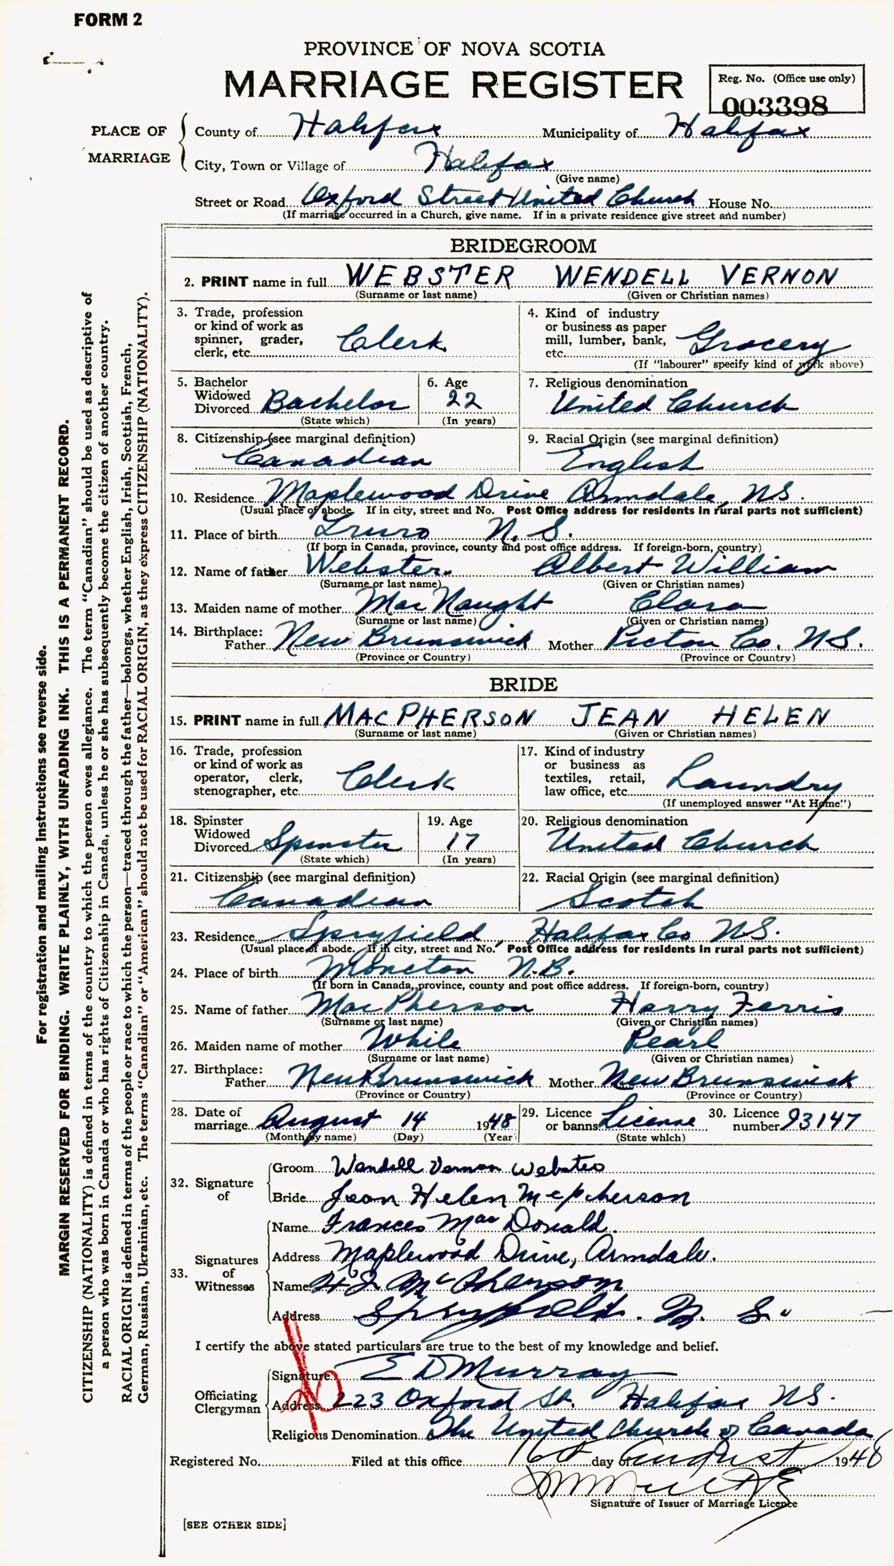 FORM 2
PROVINCE OF NOVA SCOTIA
MARRIAGE REGISTER
Reg. No. (Office use only)
003398
PLACE OF MARRIAGE
County of Halifax Municipality of Halifax
City, Town or Village of Halifax
(Give name)
Street or Road Oxford Street United Church House No.
(If marriage occurred in a Church, give name. If in a private residence give street and number)
BRIDEGROOM
2. PRINT name in full WEBSTER WENDELL VERNON
(Surname or last name) (Given or Christian names)
3. Trade, profession
or kind of work as
spinner, grader,
clerk, etc. Clerk
4. Kind of industry
or business as paper
mill, lumber, bank,
etc. Grocery
(If "labourer" specify kind of work above)
5. Bachelor
Widowed
Divorced Bachelor
(State which)
6. Age
22
(In years)
7. Religious denomination
United Church
8. Citizenship (see marginal definition)
Canadian
9. Racial Origin (see marginal definition)
English
10. Residence Maplewood Drive Armdale, NS.
(Usual place of abode. If in city, street and No. Post Office address for residents in rural parts not sufficient)
11. Place of birth Truro N.S.
(If born in Canada, province, county and post office address. If foreign-born, country)
12. Name of father Webster Albert William
(Surname or last name) (Given or Christian names)
13. Maiden name of mother MacNaught Clara
(Surname or last name) (Given or Christian names)
14. Birthplace:
Father New Brunswick Mother Pictou Co, N.S.
(Province or Country) (Province or Country)
BRIDE
15. PRINT name in full MACPHERSON JEAN HELEN
(Surname or last name) (Given or Christian names)
16. Trade, profession
or kind of work as
operator, clerk,
stenographer, etc Clerk
17. Kind of industry
or business as
textiles, retail,
law office, etc. Laundry
(If unemployed answer "At Home")
18. Spinster
Widowed
Divorced Spinster
(State which)
19. Age
17
(In years)
20. Religious denomination
United Church
21. Citizenship (see marginal definition)
Canadian
22. Racial Origin (see marginal definition)
Scotch
23. Residence Spryfield, Halifax Co NS.
(Usual place of abode. If in city, street and No. Post Office address for residents in rural parts not sufficient)
24. Place of birth Moncton N.B.
(If born in Canada, province, county and post office address. If foreign-born, country)
25. Name of father MacPherson Harry Ferris
(Surname or last name) (Given or Christian names)
26. Maiden name of mother While Pearl
(Surname or last name) (Given or Christian names)
27. Birthplace:
Father New Brunswick Mother New Brunswick
(Province or Country) (Province or Country)
28. Date of
marriage August 14 1948
(Month by name) (Day) (Year)
29. Licence
or banns License
(State which)
30. Licence
number 93147
32. Signature of
Groom Wendell Vernon Webster
Bride Jean Helen McPherson
33. Signatures of Witnesses
Name Frances MacDonald.
Address Maplewood Drive, Armdale.
Name H F McPherson
Address Spryfield. N. S.
I certify the above stated particulars are true to the best of my knowledge and belief.
Officiating Clergyman
Signature E D Murray
Address 223 Oxford St. Halifax NS.
Religious Denomination The United Church of Canada
Registered No. Filed at this office 16th day of August 1948
Signature of Issuer of Marriage Licence
[SEE OTHER SIDE]
For registration and mailing instructions see reverse side.
MARGIN RESERVED FOR BINDING. WRITE PLAINLY, WITH UNFADING INK. THIS IS A PERMANENT RECORD.
CITIZENSHIP (NATIONALITY) is defined in terms of the country to which the person owes allegiance. The term "Canadian" should be used as descriptive of
a person who was born in Canada or who has rights of Citizenship in Canada, unless he or she has subsequently become the citizen of another country.
RACIAL ORIGIN is defined in terms of the people or race to which the person—traced through the father—belongs, whether English, Irish, Scottish, French,
German, Russian, Ukrainian, etc. The terms "Canadian" or "American" should not be used for RACIAL ORIGIN, as they express CITIZENSHIP (NATIONALITY).